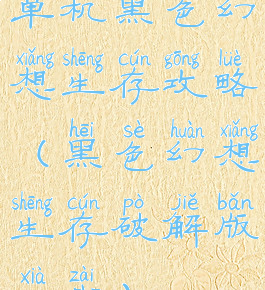 单机黑色幻
xiǎng shēng cún gōng lüè
想生存攻略
hēi sè huàn xiǎng
（黑色幻想
shēng cún pò jiě bǎn
生存破解版
xià zài